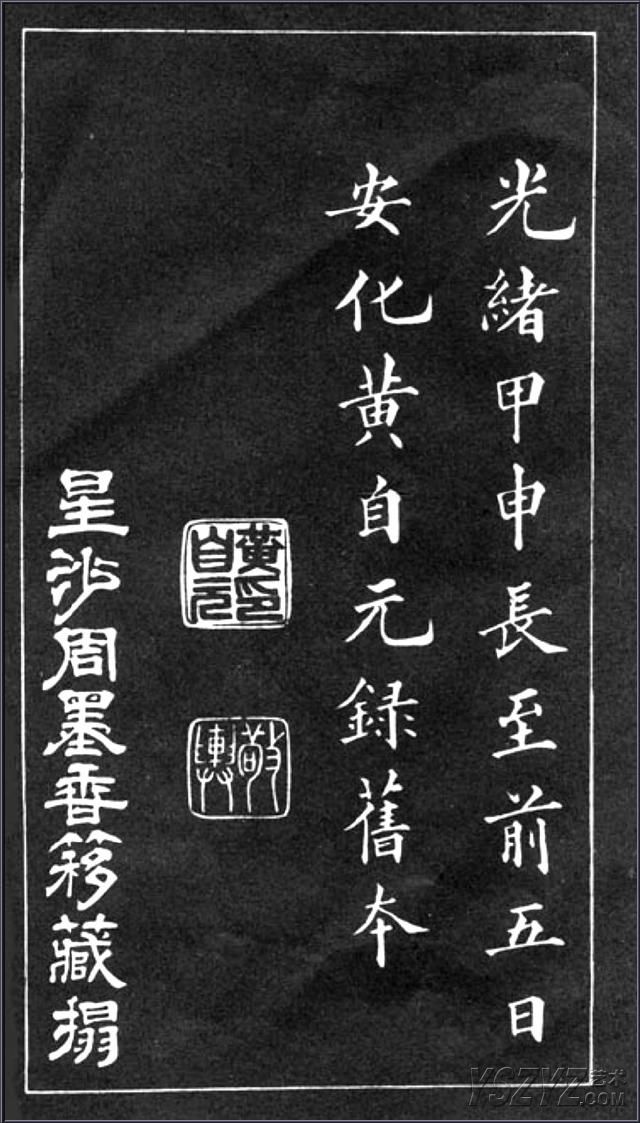 光緒甲申長至前五日
安化黄自元録舊本
黄自元印
敬輿
星沙周墨香簃藏搨
YSZYZ艺术
.COM